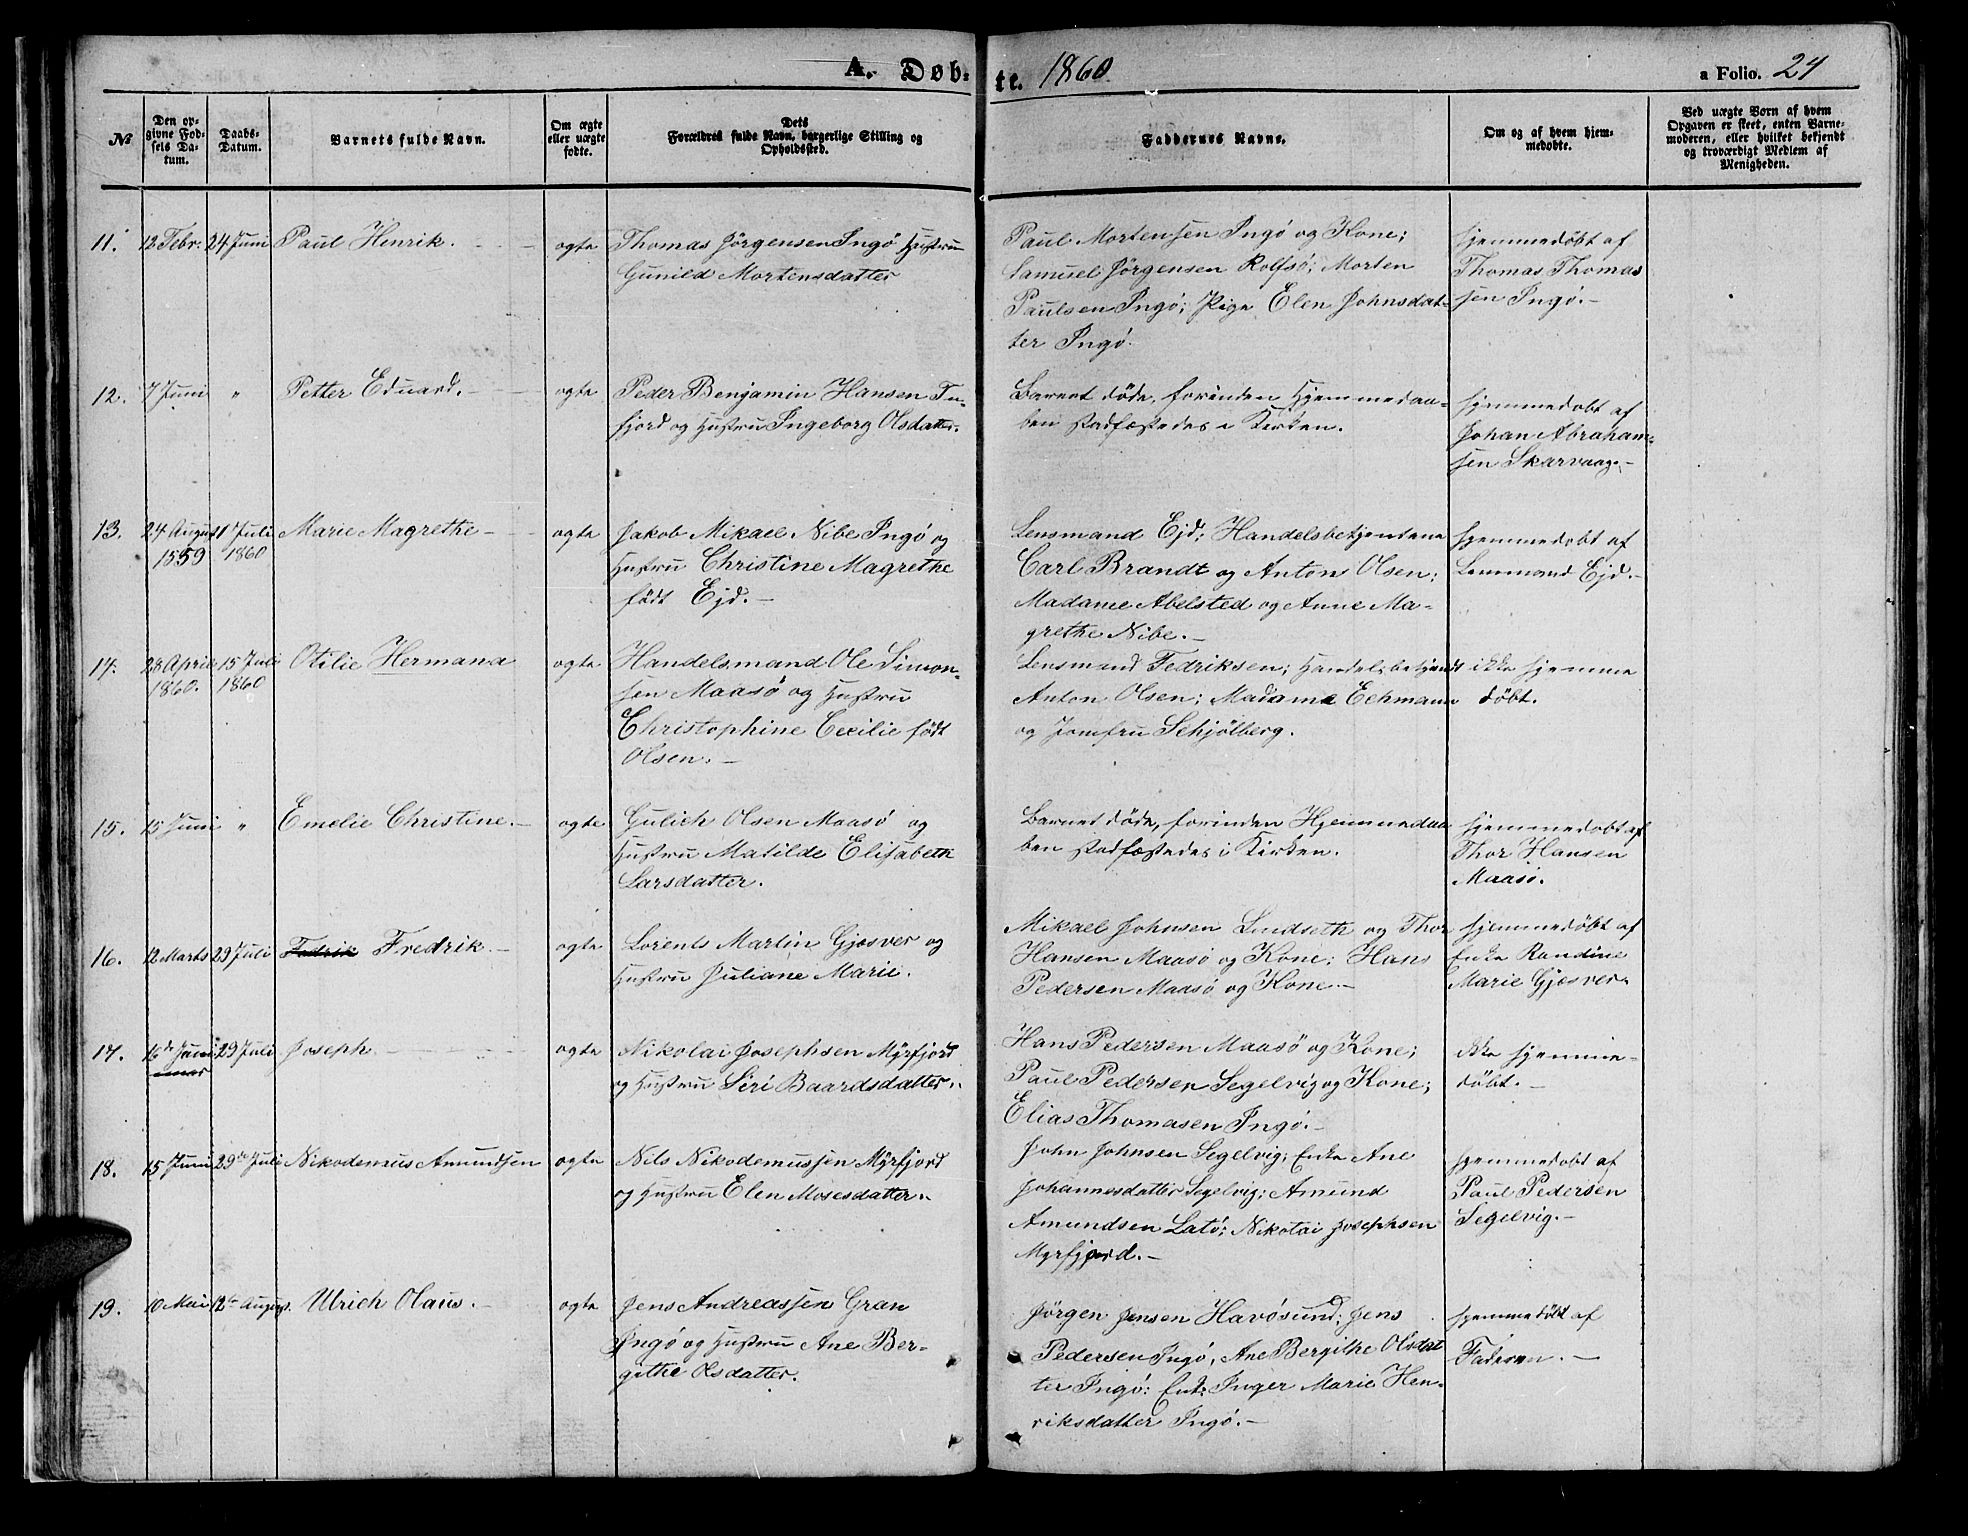 A. Døb-
te. 1860.
a Folio. 24
No
Den op-
givne Fød-
sels Da-
tum.
Daabs-
Datum.
Barnets fulde Navn.
Om ægte
eller uægte
fødte.
Dets
Forældres fulde Navn, borgerlige Stilling og
Opholdssted.
Faddernes Navne.
Om og af hvem hjem-
medøbte.
Ved uægte Børn af hvem
Opgaven er skeet, enten Barne-
moderen, eller hvilket bekjendt
og troværdigt Medlem af
Menigheden.
11. 12 Febr. 24 Juni Paul Henrik. ægte
Thomas Jörgensen Ingö Hustru
Gunild Mortensdatter
Paul Mortensen Ingö og Kone;
Samuel Jörgensen Rolfsö; Morten
Paulsen Ingö; Pige Elen Johnsdat-
ter Ingö.
hjemmedöbt af
Thomas Thomas
sen Ingö.-
12. 7 Juni " Petter Eduard.- ægte
Peder Benjamin Hansen Tu-
fjord og Hustru Ingeborg Olsdatter.
Barnet døde, forinden Hjemmedaa-
ben stadfæstedes i Kirken.
hjemmedöbt af
Johan Abraham-
sen Skarvaag.-
13. 24 August 1 Juli Marie Magrethe- ægte
1859 1860
Jakob Mikael Nibe Ingö og
Hustru Christine Magrethe
født Ejd.-
Lensmand Ejd; Handelsbetjentene
Carl Brandt og Anton Olsen;
Madame Abelsted og Anne Ma-
grethe Nibe.-
hjemmedöbt af
Lensmand Ejd.-
14. 28 April 15 Juli Otilie Hermana ægte
1860. 1860
Handelsmand Ole Simon-
sen Maasö og Hustru
Christophine Cecilie født
Olsen.-
Lensmand Fedriksen; Handelsbetjendt
Anton Olsen; Madame Eckmann
og Jomfru Schjölberg.
ikke hjemme
döbt.
15. 15 Juni " Emelie Christine.- ægte
Gulich Olsen Maasö og
Hustru Matilde Elisabeth
Larsdatter.
Barnet døde, forinden Hjemmedaa
ben stadfæstedes i Kirken.
hjemmedöbt af
Thor Hansen
Maasö.
16. 12 Marts 29 Juli Fedrik Fredrik.- ægte
Lorents Martin Gjesver og
Hustru Juliane Marie.
Mikael Johnsen Lindseth og Thor
Hansen Maasö og Kone; Hans
Pedersen Maasö og Kone.-
hjemmedöbt af
Enke Randine
Marie Gjesver.
17. 16de Juni 29 Juli Joseph. ægte
Nikolai Josephsen Myrfjord
og Hustru Siri Baardsdatter.
Hans Pedersen Maasö og Kone;
Paul Pedersen Segelvig og Kone;
Elias Thomasen Ingö.-
ikke hjemme-
döbt.-
18. 15 Juni 29de Juli Nikodemus Amundsen ægte
Nils Nikodemussen Myrfjord
og Hustru Elen Mosesdatter.
John Johnsen Segelvig; Enke Ane
Johannesdatter Segelvig; Amund
Amundsen Latö; Nikolai Josephsen
Myrfjord.-
hjemmedöbt af
Paul Pedersen
Segelvig.-
19. 10 Mai 12te August. Ulrich Olaus.- ægte
Jens Andreassen Gran
Ingö og Hustru Ane Ber-
githe Olsdatter.
Jörgen Jensen Havösund; Jens
Pedersen Ingö, Ane Bergithe Olsdat
ter Ingö; Enke Inger Marie Hen-
riksdatter Ingö.-
hjemmedöbt af
Faderen.-